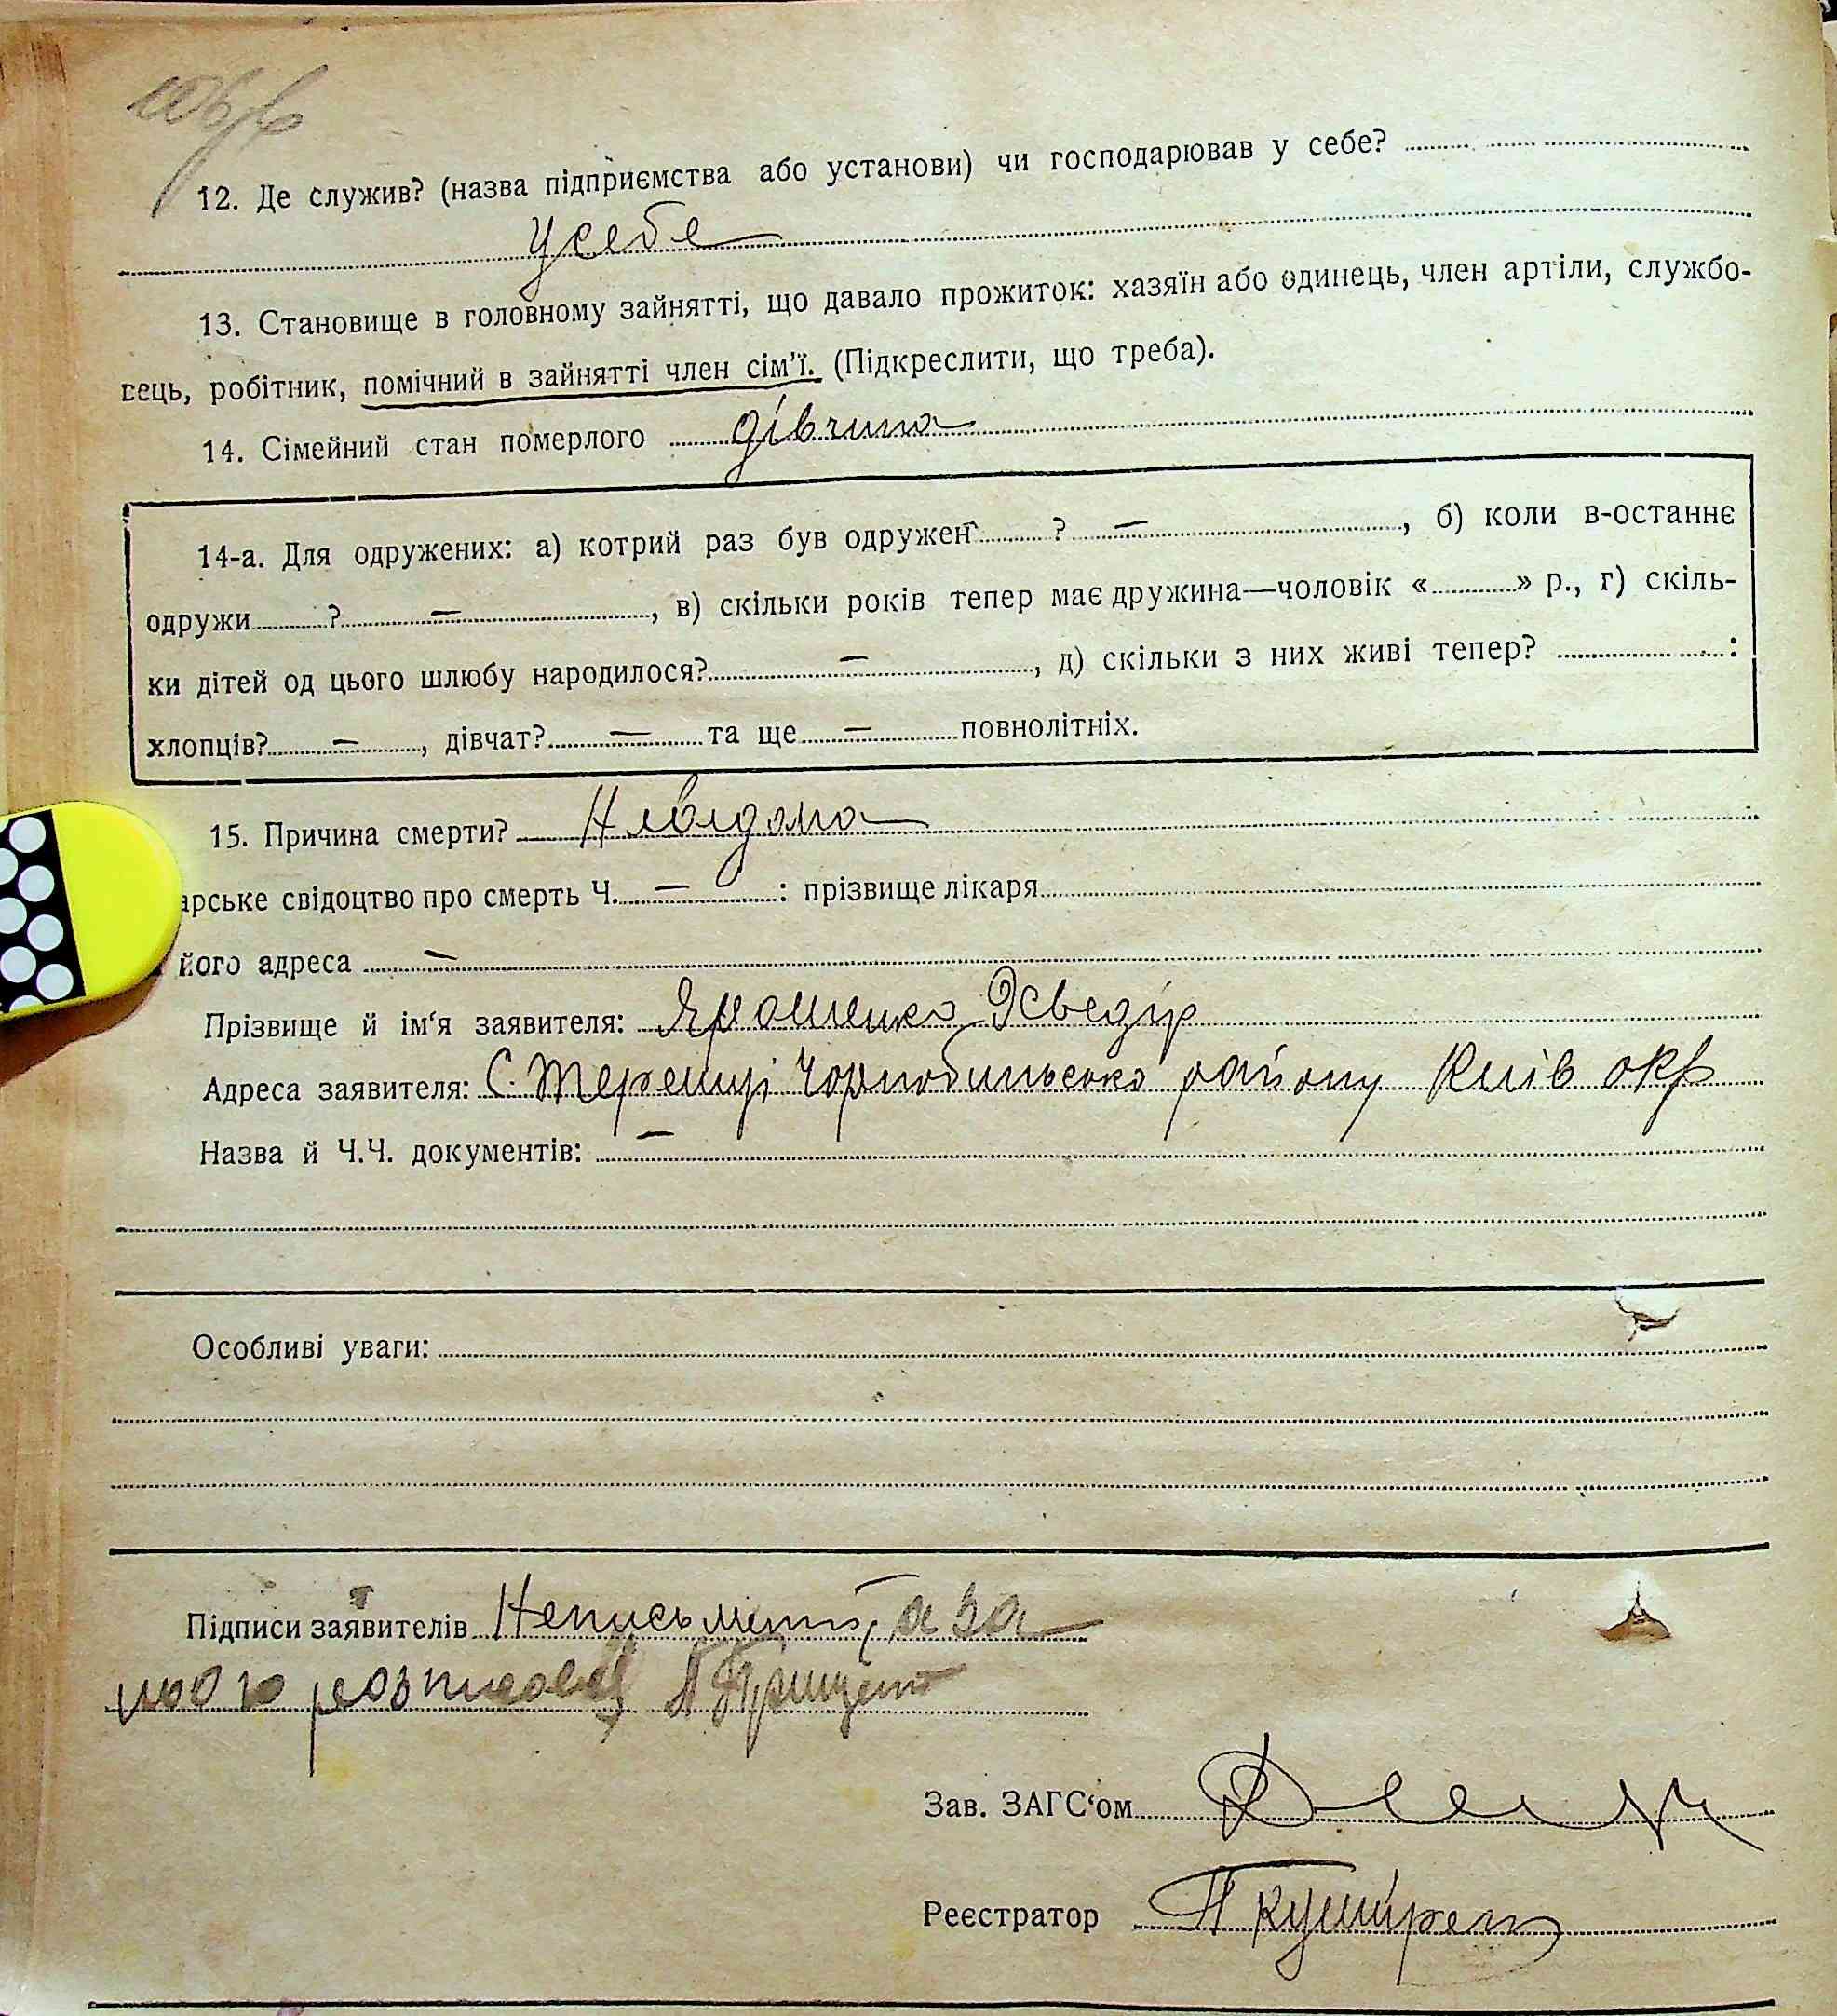 12. Де служив? (назва підприємства або установи) чи господарював у себе?
У себе
13. Становище в головному зайнятті, що давало прожиток: хазяїн або одинець, член артіли, службо-
вець, робітник, помічний в зайнятті член сім'ї. (Підкреслити, що треба).
14. Сімейний стан померлого дівчина
14-а. Для одружених: а) котрий раз був одружен ? —, б) коли в-останнє
одружи ? —, в) скільки років тепер має дружина—чоловік « » р., г) скіль-
ки дітей од цього шлюбу народилося? —, д) скільки з них живі тепер? :
хлопців? —, дівчат? — та ще — повнолітніх.
15. Причина смерти? Невідома
арське свідоцтво про смерть Ч. — : прізвище лікаря
його адреса —
Прізвище й ім'я заявителя: Ярошенко
Адреса заявителя: С. Теремці Чорнобильсько району Київ окр
Назва й Ч.Ч. документів: —
Особливі уваги:
Підписи заявителів Неписьмений, а за
його розписався
Зав. ЗАГС'ом
Реєстратор